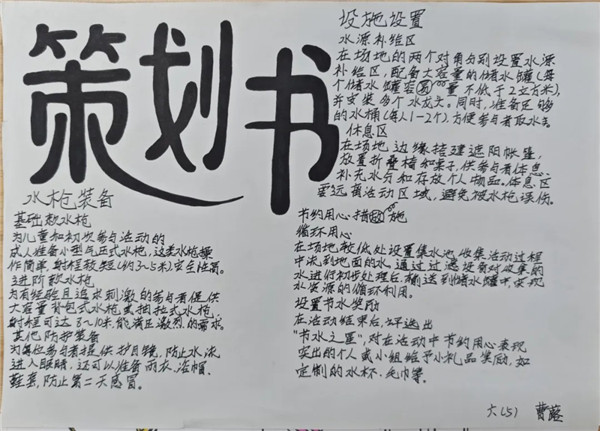 策划书
水枪装备
基础款水枪
为儿童和初次参与活动的
成人准备小型气压式水枪，这类水枪操
作简单，射程较短（约3~5米），安全性高。
进阶款水枪
为有经验且追求刺激的参与者提供
大容量背包式水枪或抽拉式水枪，
射程可达8~10米，能满足激烈的需求。
其他防护装备
为每位参与者提供护目镜，防止水溅
进入眼睛，还可以准备雨衣、浴帽、
鞋套，防止第二天感冒。
设施设置
水源补给区
在场地的两个对角分别设置水源
补给区，配备大容量的储水罐（每
个储水罐容量不低于2立方米），
并安装多个水龙头。同时，准备足够
的水桶（每人1-2个），方便参与者取水。
休息区
在场地边缘搭建遮阳帐篷，
放置折叠椅和桌子，供参与者休息、
补充水分和存放个人物品。休息区
要远离活动区域，避免被水枪误伤。
节约用水措施
循环用水
在场地较低处设置集水池，收集活动过程
中流到地面的水，通过过滤设备对收集的
水进行初步处理后，输送到储水罐中，实现
水资源的循环利用。
设置节水奖励
在活动结束后，评选出
“节水之星”，对在活动中节约用水表现
突出的个人或小组给予小礼品奖励，如
定制的水杯、毛巾等。
六（5） 曹